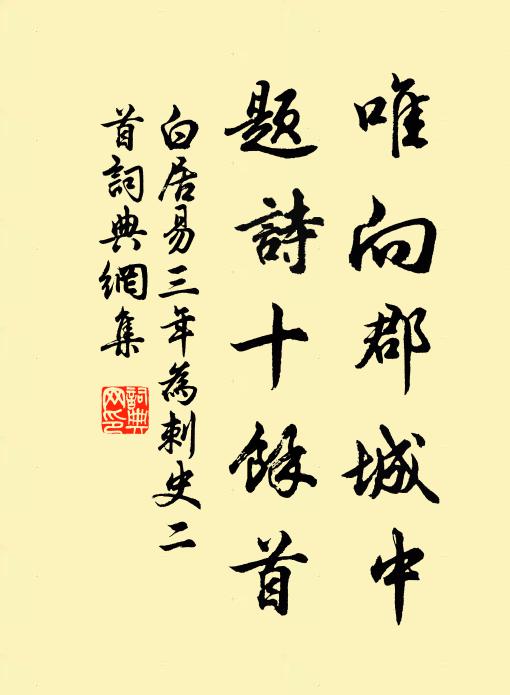 唯向郡城中
題詩十餘首
白居易三年為刺史二
首詞典網集
詞典
网印